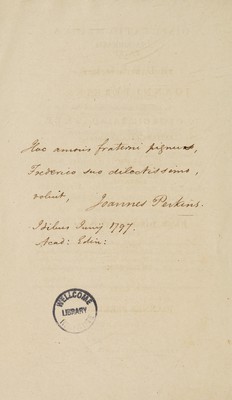 Hoc amoris fraterni pignus,
Frederico suo dilectissimo,
voluit, Joannes Perkins.
Idibus Junij 1797.
Acad: Edin:
WELLCOME
LIBRARY